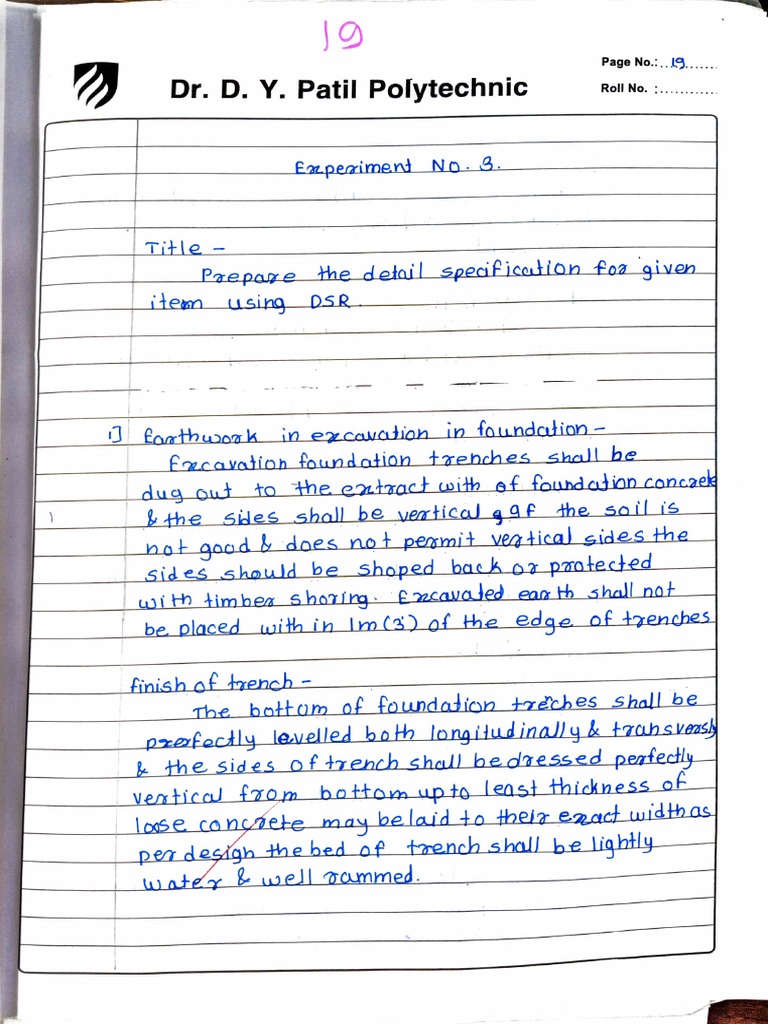 19
Page No.: 19
Dr. D. Y. Patil Polytechnic
Roll No. :
Experiment No. 3.
Title -
Prepare the detail specification for given
item using DSR.
1] Earthwork in excavation in foundation -
Excavation foundation trenches shall be
dug out to the extract with of foundation concrete
& the sides shall be vertical gqf the soil is
not good & does not permit vertical sides the
sides should be shoped back or protected
with timber shoring. Excavated earth shall not
be placed with in 1m (3') of the edge of trenches
finish of trench -
The bottom of foundation treches shall be
prerfectly levelled both longitudinally & transversly
& the sides of trench shall be dressed perfectly
vertical from bottom up to least thickness of
loose concrete may be laid to their exact width as
per design the bed of trench shall be lightly
water & well rammed.